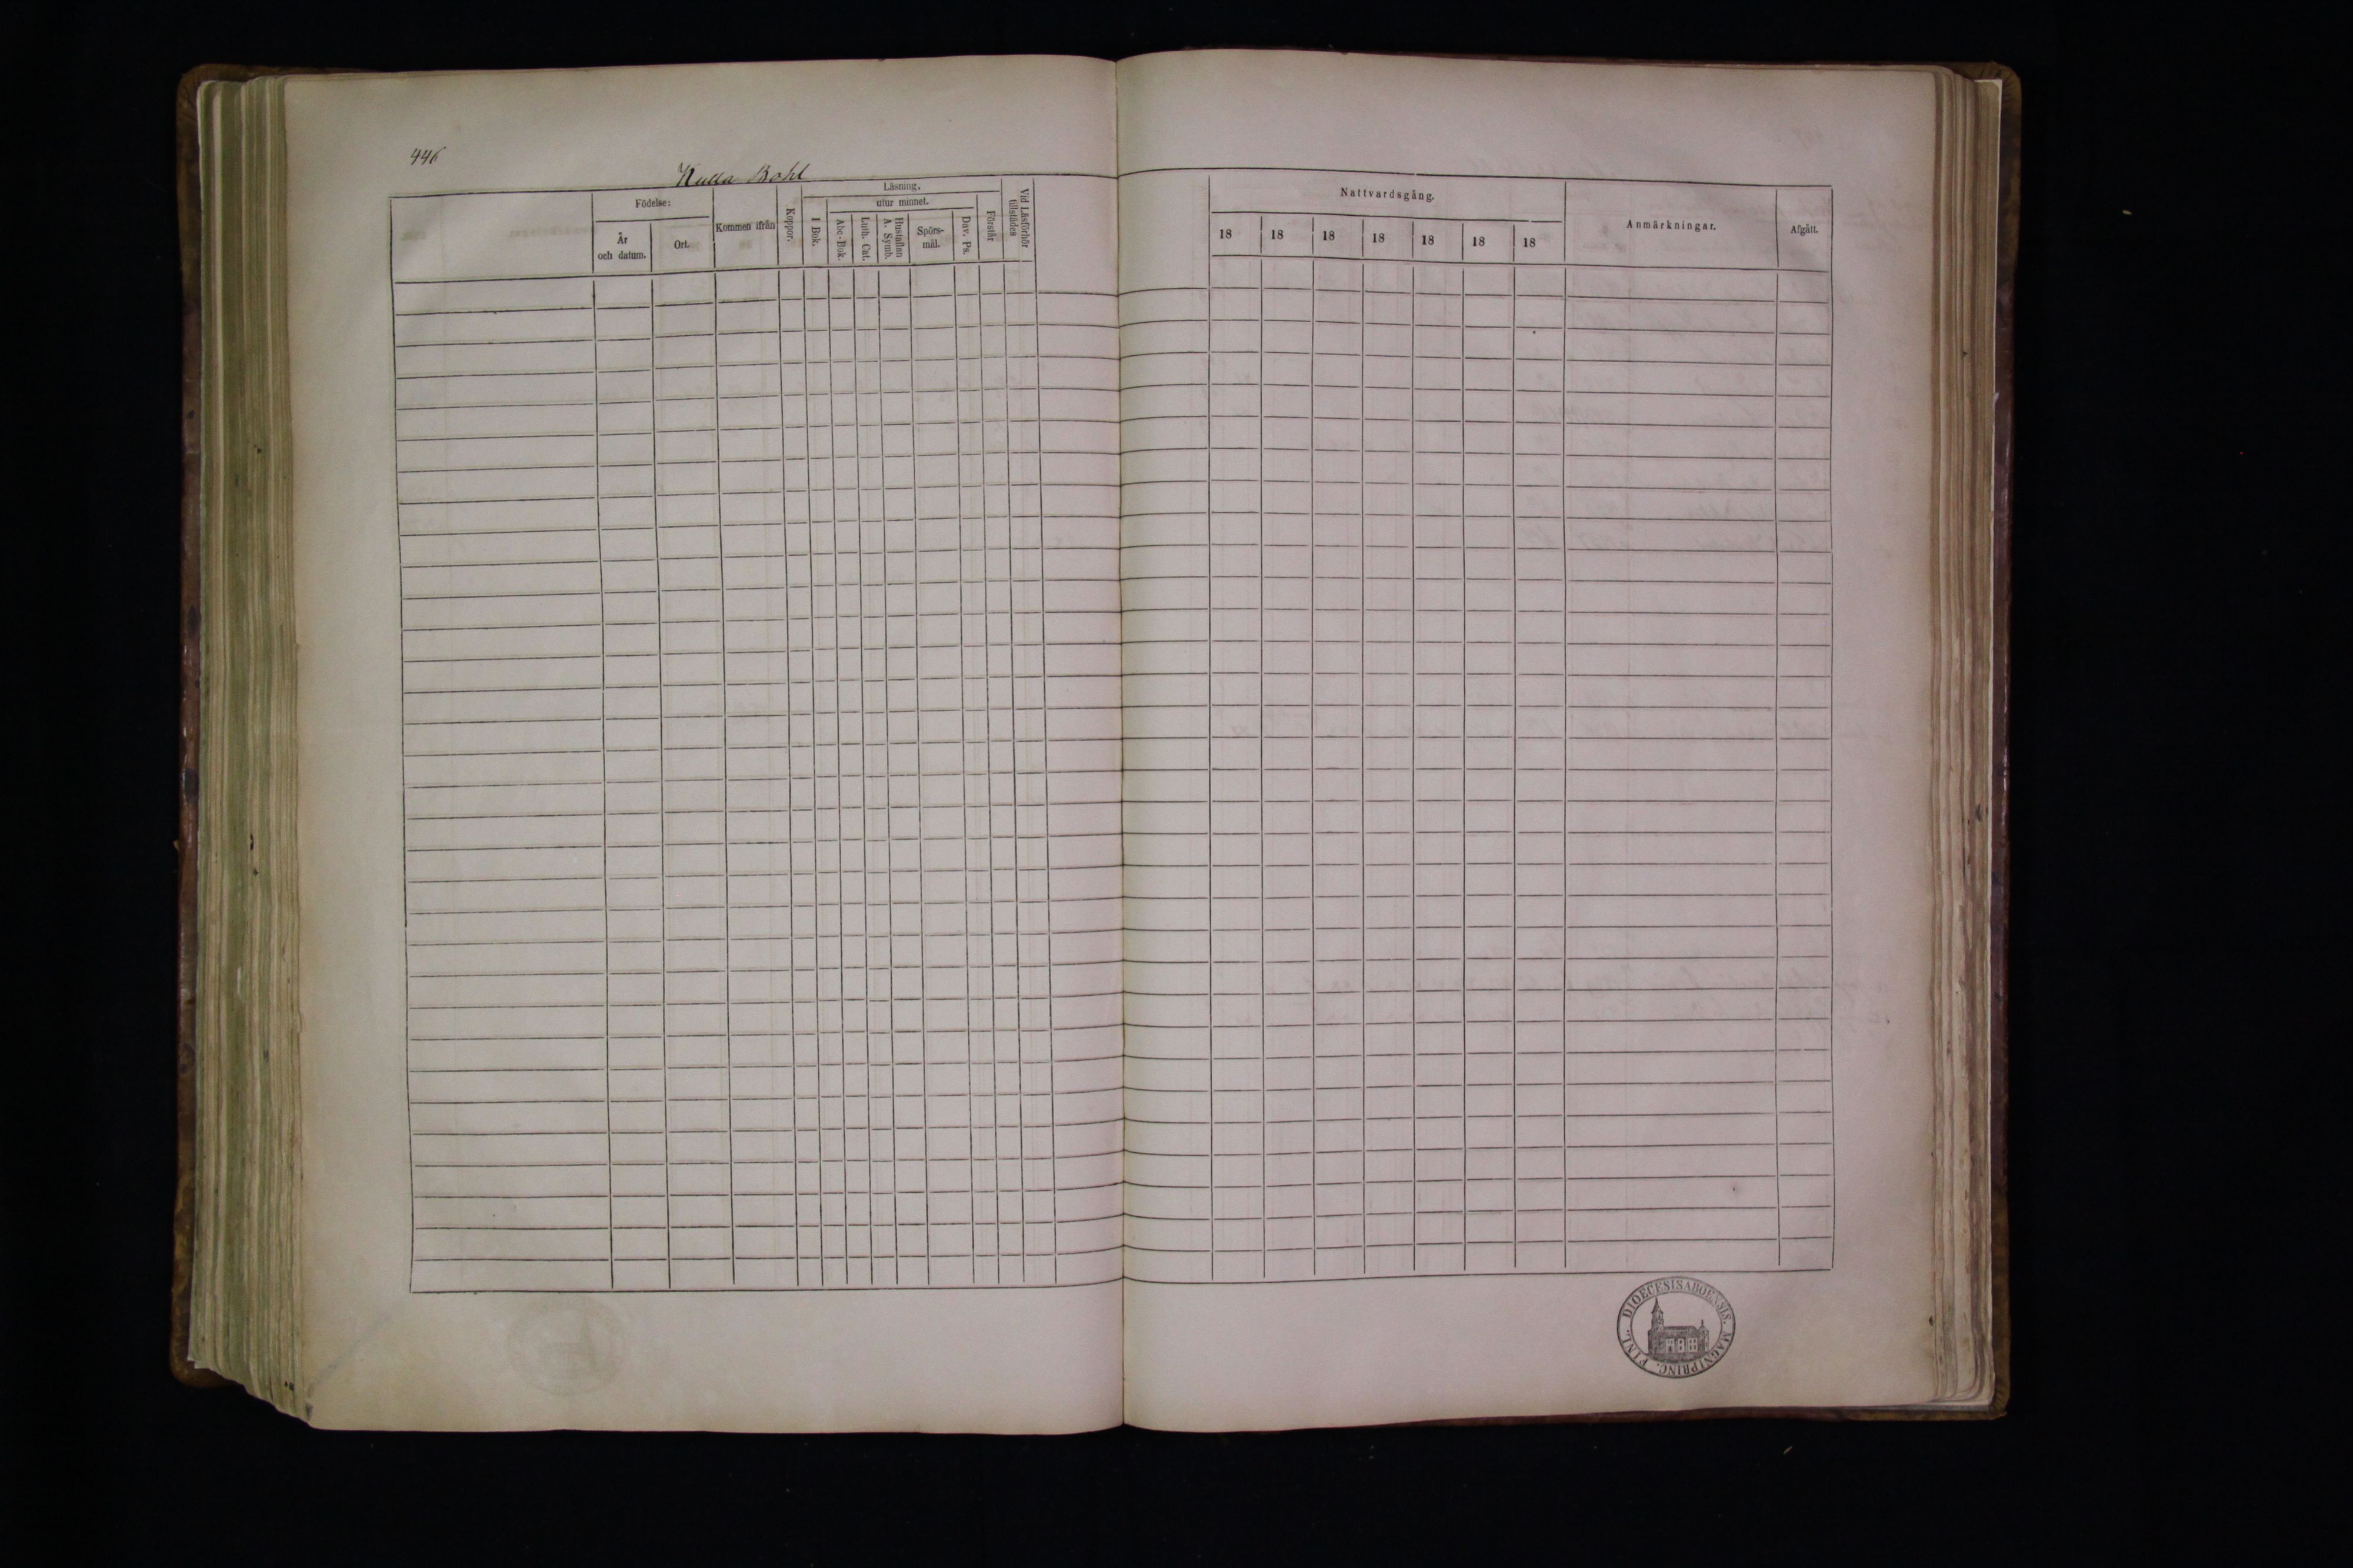 446
Kulla Bohl
Födelse:
År
och datum.
Ort.
Kommen ifrån
Koppor.
Läsning.
I Bok.
utur minnet.
Abc-Bok.
Luth. Cat.
Hustaflan
A. Symb.
Spörs-
mål.
Dav. Ps.
Förstår
Vid Läsförhör
tillstädes
Nattvardsgång.
18 18 18 18 18 18 18
Anmärkningar.
Afgått.
DIOECESIS ABOENSIS. MAGNI PRINC. FINL.